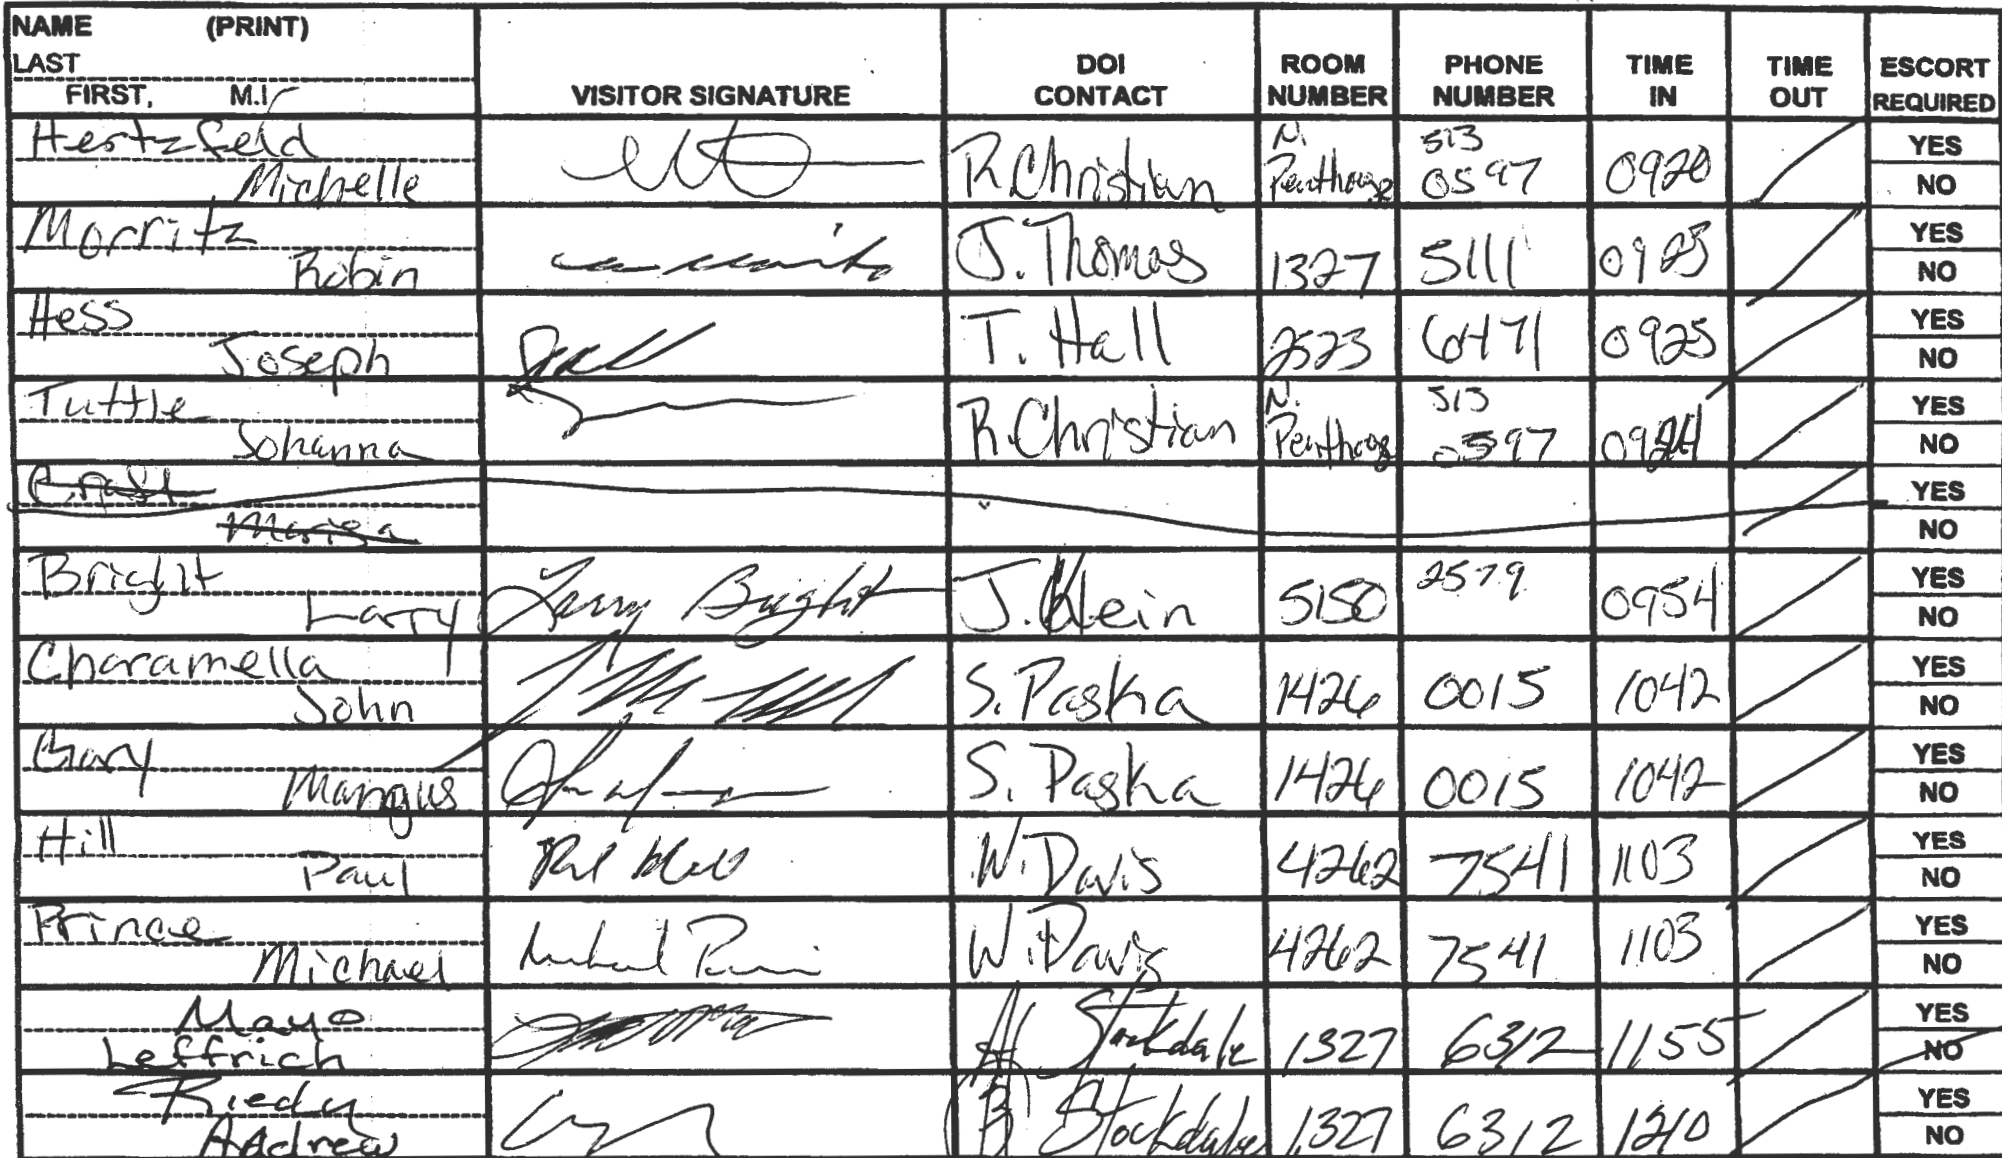 NAME (PRINT)
LAST
FIRST, M.I.
VISITOR SIGNATURE
DOI
CONTACT
ROOM
NUMBER
PHONE
NUMBER
TIME
IN
TIME
OUT
ESCORT
REQUIRED
Hertzfeld
Michelle
R. Christian
N.
Penthouse
513
0597
0920
YES
NO
Morritz
Robin
J. Thomas
1327
5111
0923
YES
NO
Hess
Joseph
T. Hall
2523
6471
0925
YES
NO
Tuttle
Johanna
R. Christian
N.
Penthouse
513
0597
0924
YES
NO
Marisa
YES
NO
Bright
Larry
Larry Bright
J. Klein
5150
2579
0954
YES
NO
Charamella
John
S. Paska
1426
0015
1042
YES
NO
Gary
Mangus
S. Paska
1426
0015
1042
YES
NO
Hill
Paul
Paul Hill
W. Davis
4262
7541
1103
YES
NO
Prince
Michael
W. Davis
4262
7541
1103
YES
NO
Mayo
Leffrich
Stockdale
1327
6312
1155
YES
NO
Riedy
Andrew
Stockdale
1327
6312
1210
YES
NO